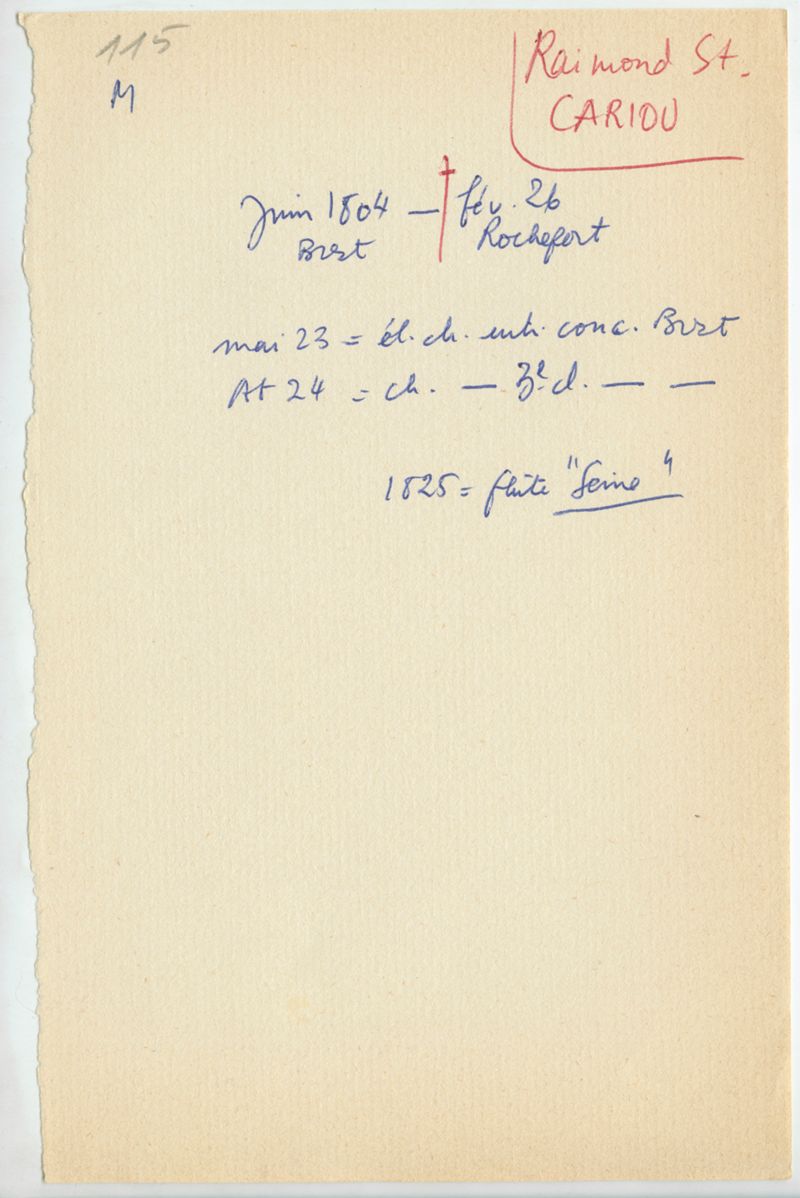 115
M
Raimond St.
CARIOU
Juin 1804 — † fév. 26
Brest Rochefort
mai 23 = él. ch. ent. conc. Brest
At 24 = ch. — 3e cl. — —
1825 = flûte "Seine"